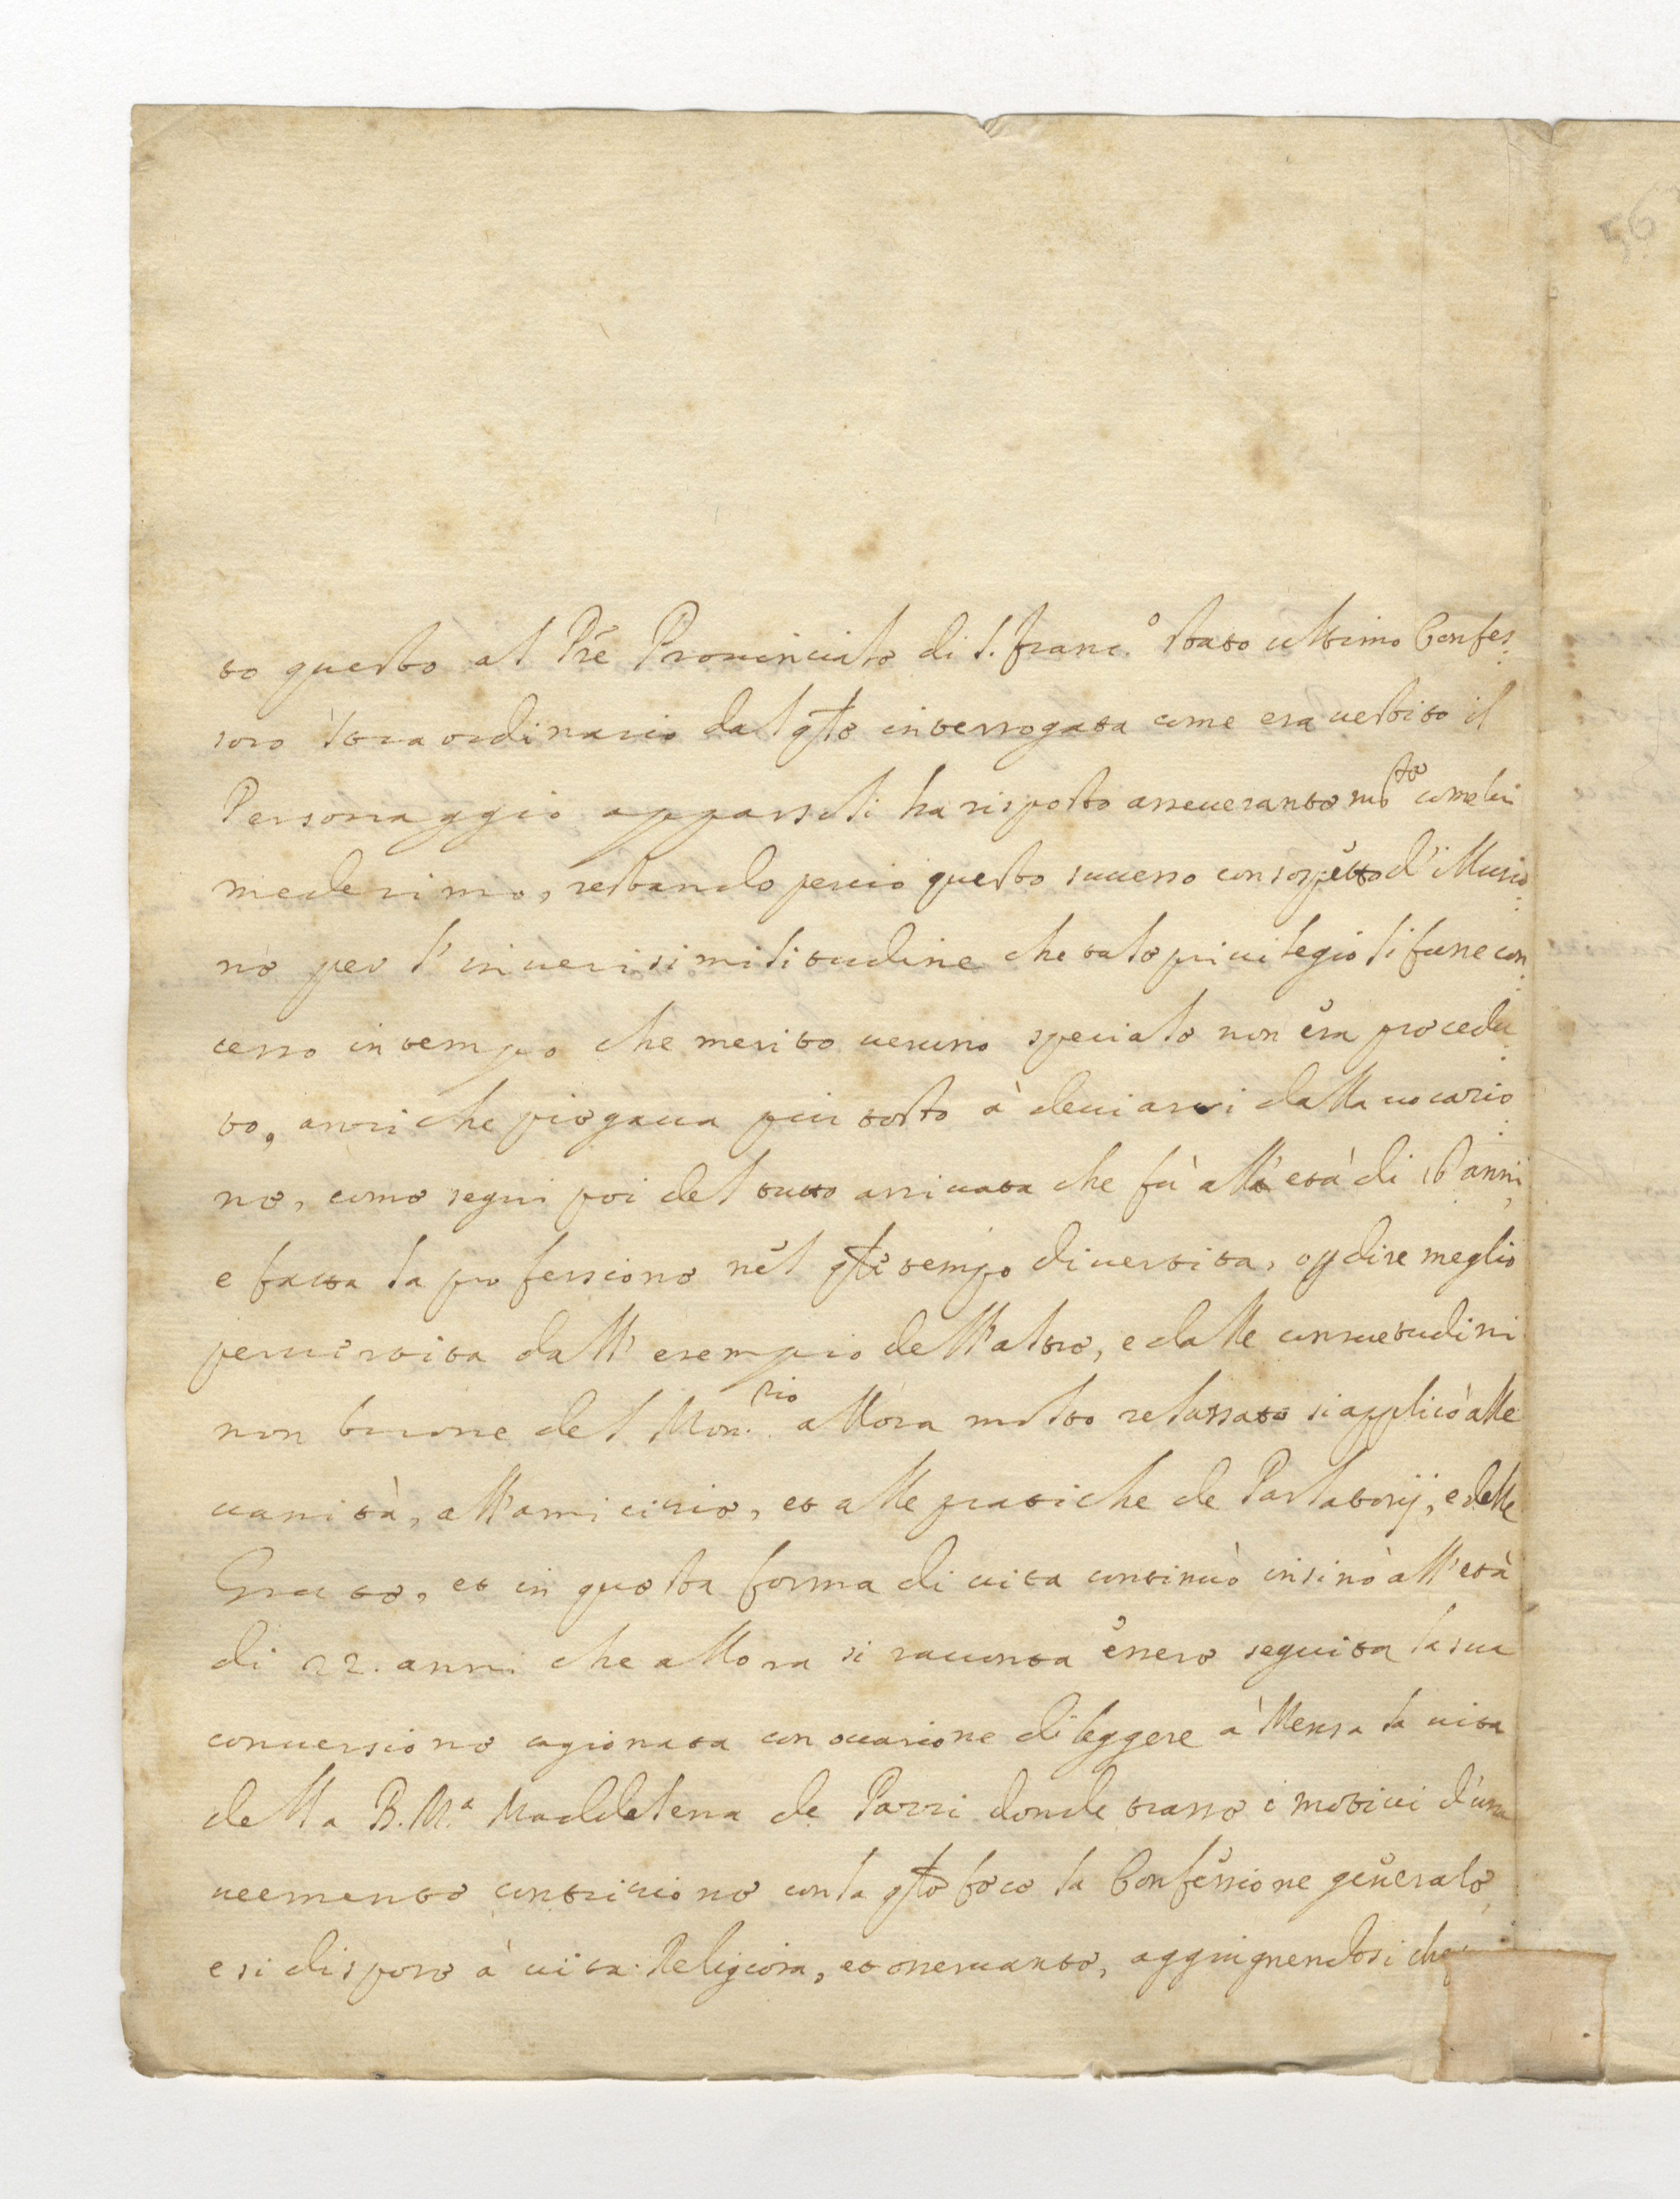 to questo al Prē Prouinciale di S. Franc.º stato ultimo Confes:
sore straordinario dal qle interrogata come era uestito il
Personaggio apparsoli ha risposto asseuerantem.te come lui
medesimo, restando perciò questo successo con sospetto d'illusio:
ne per l'inuerisimilitudine che tale priuilegio li fusse con:
cesso in tempo che merito ueruno speciale non era precedu:
to, anzi che piegaua piu tosto à deuiarsi dalla uocazio:
ne, come segui poi del tutto arriuata che fù all'età di 16 anni,
e fatta la professione nel qle tempo diuertita, o p dire meglio
peruertita dall'esempio dell'altre, e dalle consuetudini
non buone del Mon.rio allora molto relassato si applicò alle
uanità, all'amicizie, et alle pratiche de Parlatorij, e delle
Grate, et in questa forma di uita continuò insino all'età
di 22. anni che allora si racconta essere seguita la sua
conuersione cagionata con occasione di leggere à Mensa la uita
della B. M.ª Maddalena de Pazzi donde trasse i motiui d'una
ueemente contrizione con la qle fece la Confessione generale,
e si dispose à uita Religiosa, et osseruante, aggiugnendosi che
56